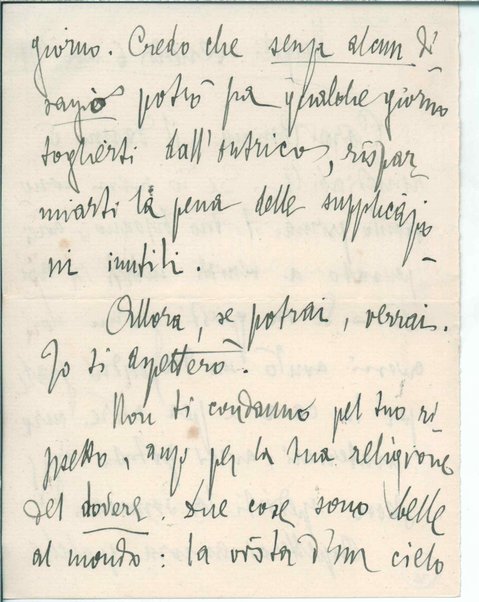 giorno. Credo che senza alcun di
sagio potrò fra qualche giorno
toglierti dall'intrico, rispar
miarti la pena delle supplicazio
ni inutili.
Allora, se potrai, verrai.
Io ti aspetterò.
Non ti condanno pel tuo ri
spetto, anzi per la tua religione
del dovere. Due cose sono belle
al mondo: la vista d'un cielo